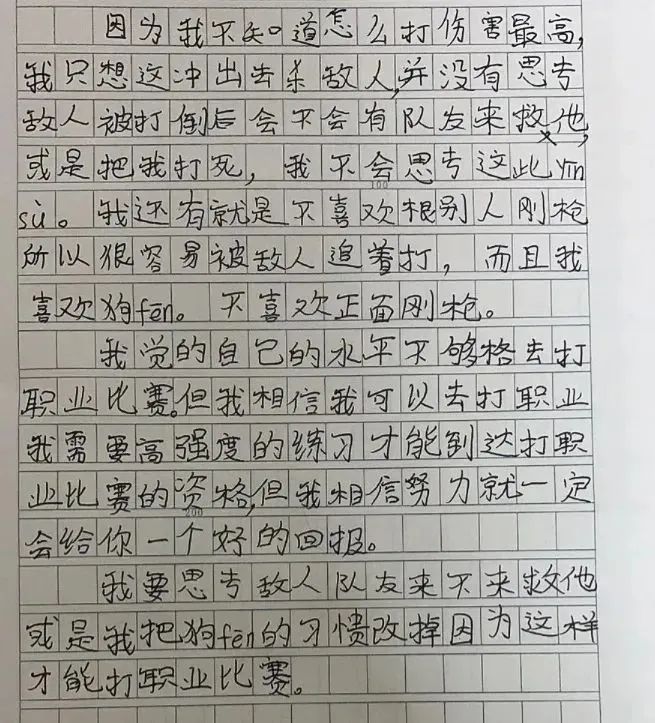 因为我不知道怎么打伤害最高,
我只想这冲出去杀敌人,并没有思考
敌人被打倒后会不会有队友来救他,
或是把我打死，我不会思考这此yīn
100
sù。我还有就是不喜欢根别人刚枪
所以狠容易被敌人追着打，而且我
喜欢狗fēn。不喜欢正面刚枪。
我觉的自己的水平不够格去打
职业比赛。但我相信我可以去打职业
我需要高强度的练习才能到达打职
业比赛的资格,但我相信努力就一定
200
会给你一个好的回报。
我要思考敌人队友来不来救他
或是我把狗fēn的习惯改掉因为这样
才能打职业比赛。